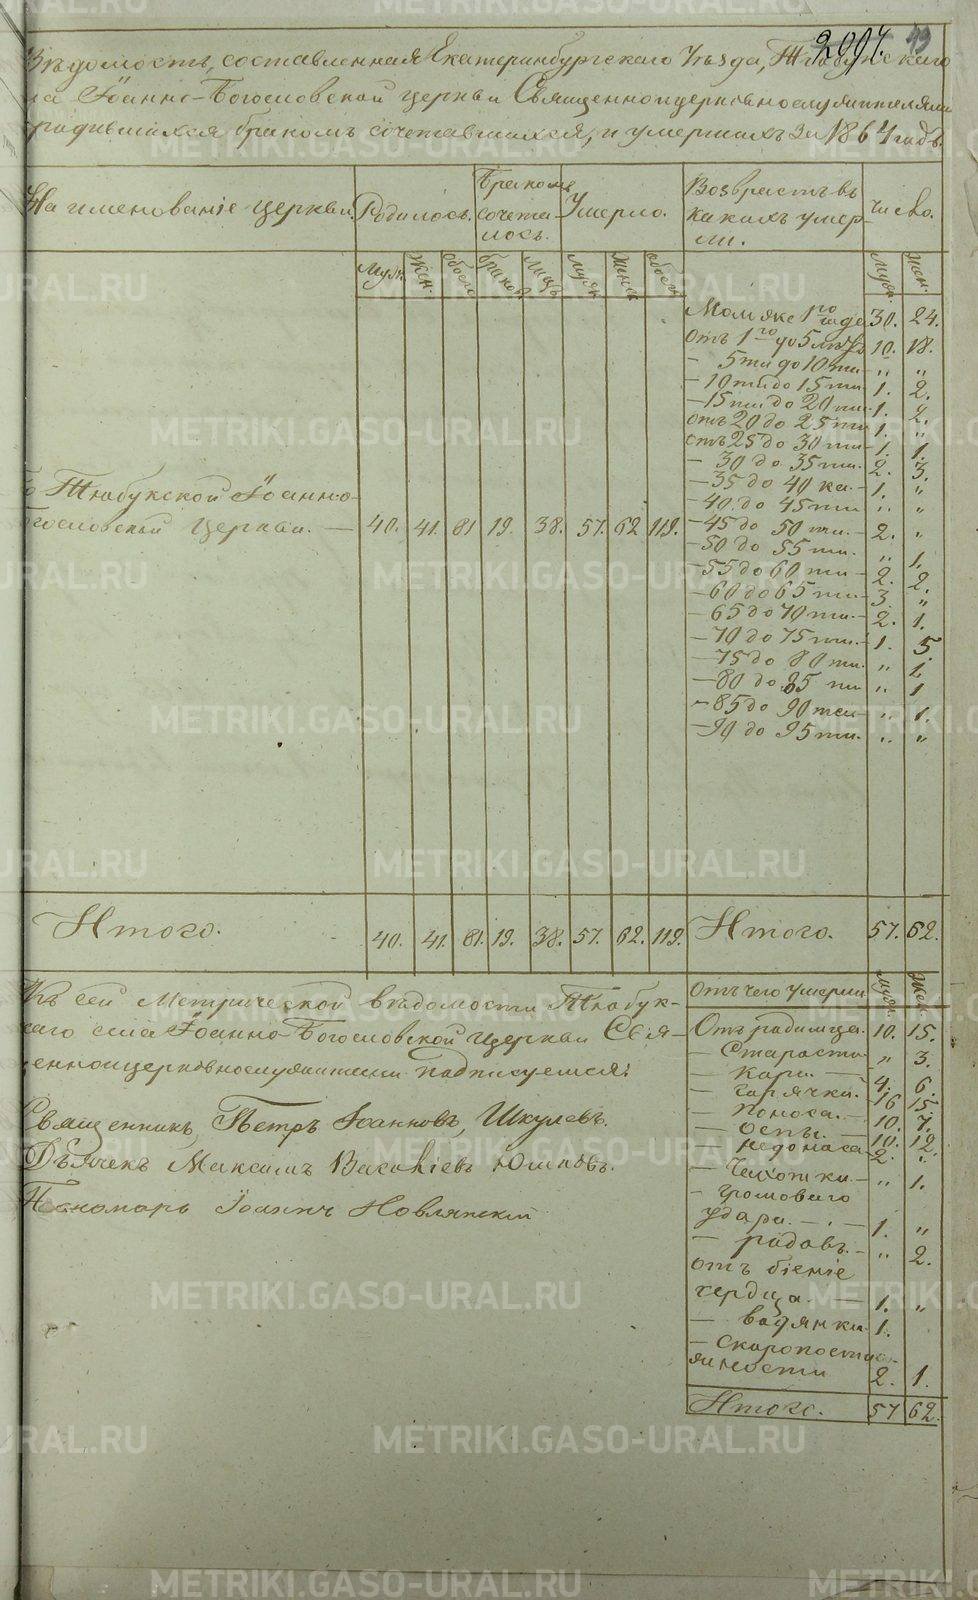 2007. 49
Вѣдомость, составленная Екатеринбургскаго Уѣзда, Тюбукскаго
ла Іоанно-Богословской церкви Священноцерковнослужителями
родившихся бракомъ сочетавшихся, и умершихъ за 1864 годъ.
Наименованіе церкви. Родилось. Бракомъ сочета-лось. Умерло. Возврастъ въ какихъ умер-ли. Число.
Муж. Жен. Обоего браков лицъ муж женск обоего Муж. Жен.
Моложе 1го года 30. 24.
Отъ 1го до 5 лѣтъ 10. 18.
- 5ти до 10ти - " "
- 10ти до 15ти 1. 2.
- 15ти до 20ти - 1. 2.
отъ 20 до 25ти 1. "
отъ 25 до 30ти - 1. 1.
- 30 до 35ти. 2. 3.
- 35 до 40ка. - 1. "
- 40 до 45ти " "
- 45 до 50ти. - 2. "
- 50 до 55ти. " 1.
- 55 до 60ти - 2. 2.
- 60 до 65ти - 3 "
- 65 до 70ти. - 2. 1.
- 70 до 75ти. - 1. 5.
- 75 до 80ти. " 1.
- 80 до 85ти " 1
- 85 до 90ти - " 1.
- 90 до 95ти. " "
Тюбукской Іоанно-
Богословской Церкви. — 40. 41. 81 19. 38. 57. 62 119.
Итого. 40. 41. 81. 19. 38. 57. 62. 119. Итого. 57. 62.
Къ сей Метрической вѣдомости Тюбук-
скаго села Іоанно-Богословской Церкви Свя-
щенноцерковнослужители подписуемся:
Священникъ, Петръ Іоанновъ, Шкулевъ.
Дьячекъ Максимъ Юшковъ.
Пономарь Іоаннъ Новлянскій
Отъ чего умерли муж. жен.
Отъ родимца. 10. 15.
- Старости " 3.
- Кори. — 4. 6.
- Горячки. 16 15.
- Поноса. - 10. 7.
- Оспы. - 10. 12.
- недоноса 2. "
- Чахотки. - " 1.
- громоваго
удара. - . - 1. "
- родовъ. - " 2.
отъ біеніе
сердца. — 1. "
- водянки 1.
- Скоропостиж-
ности 2. 1.
Итого. 57 62.
METRIKI.GASO-URAL.RU